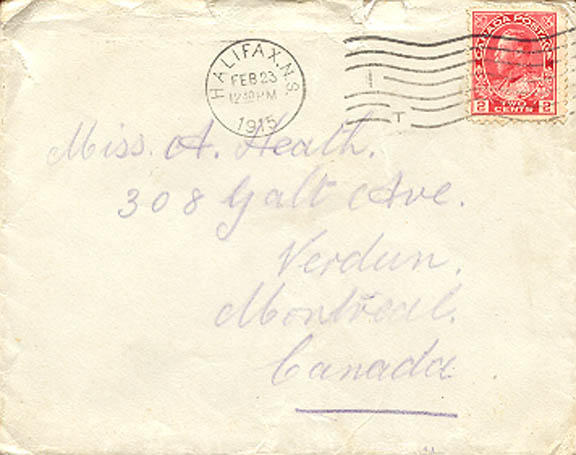 HALIFAX, N.S.
FEB 23
12 30 PM
1915
CANADA POSTAGE
2 TWO CENTS 2
T
Miss. A. Heath.
308 Galt Ave.
Verdun.
Montreal.
Canada.